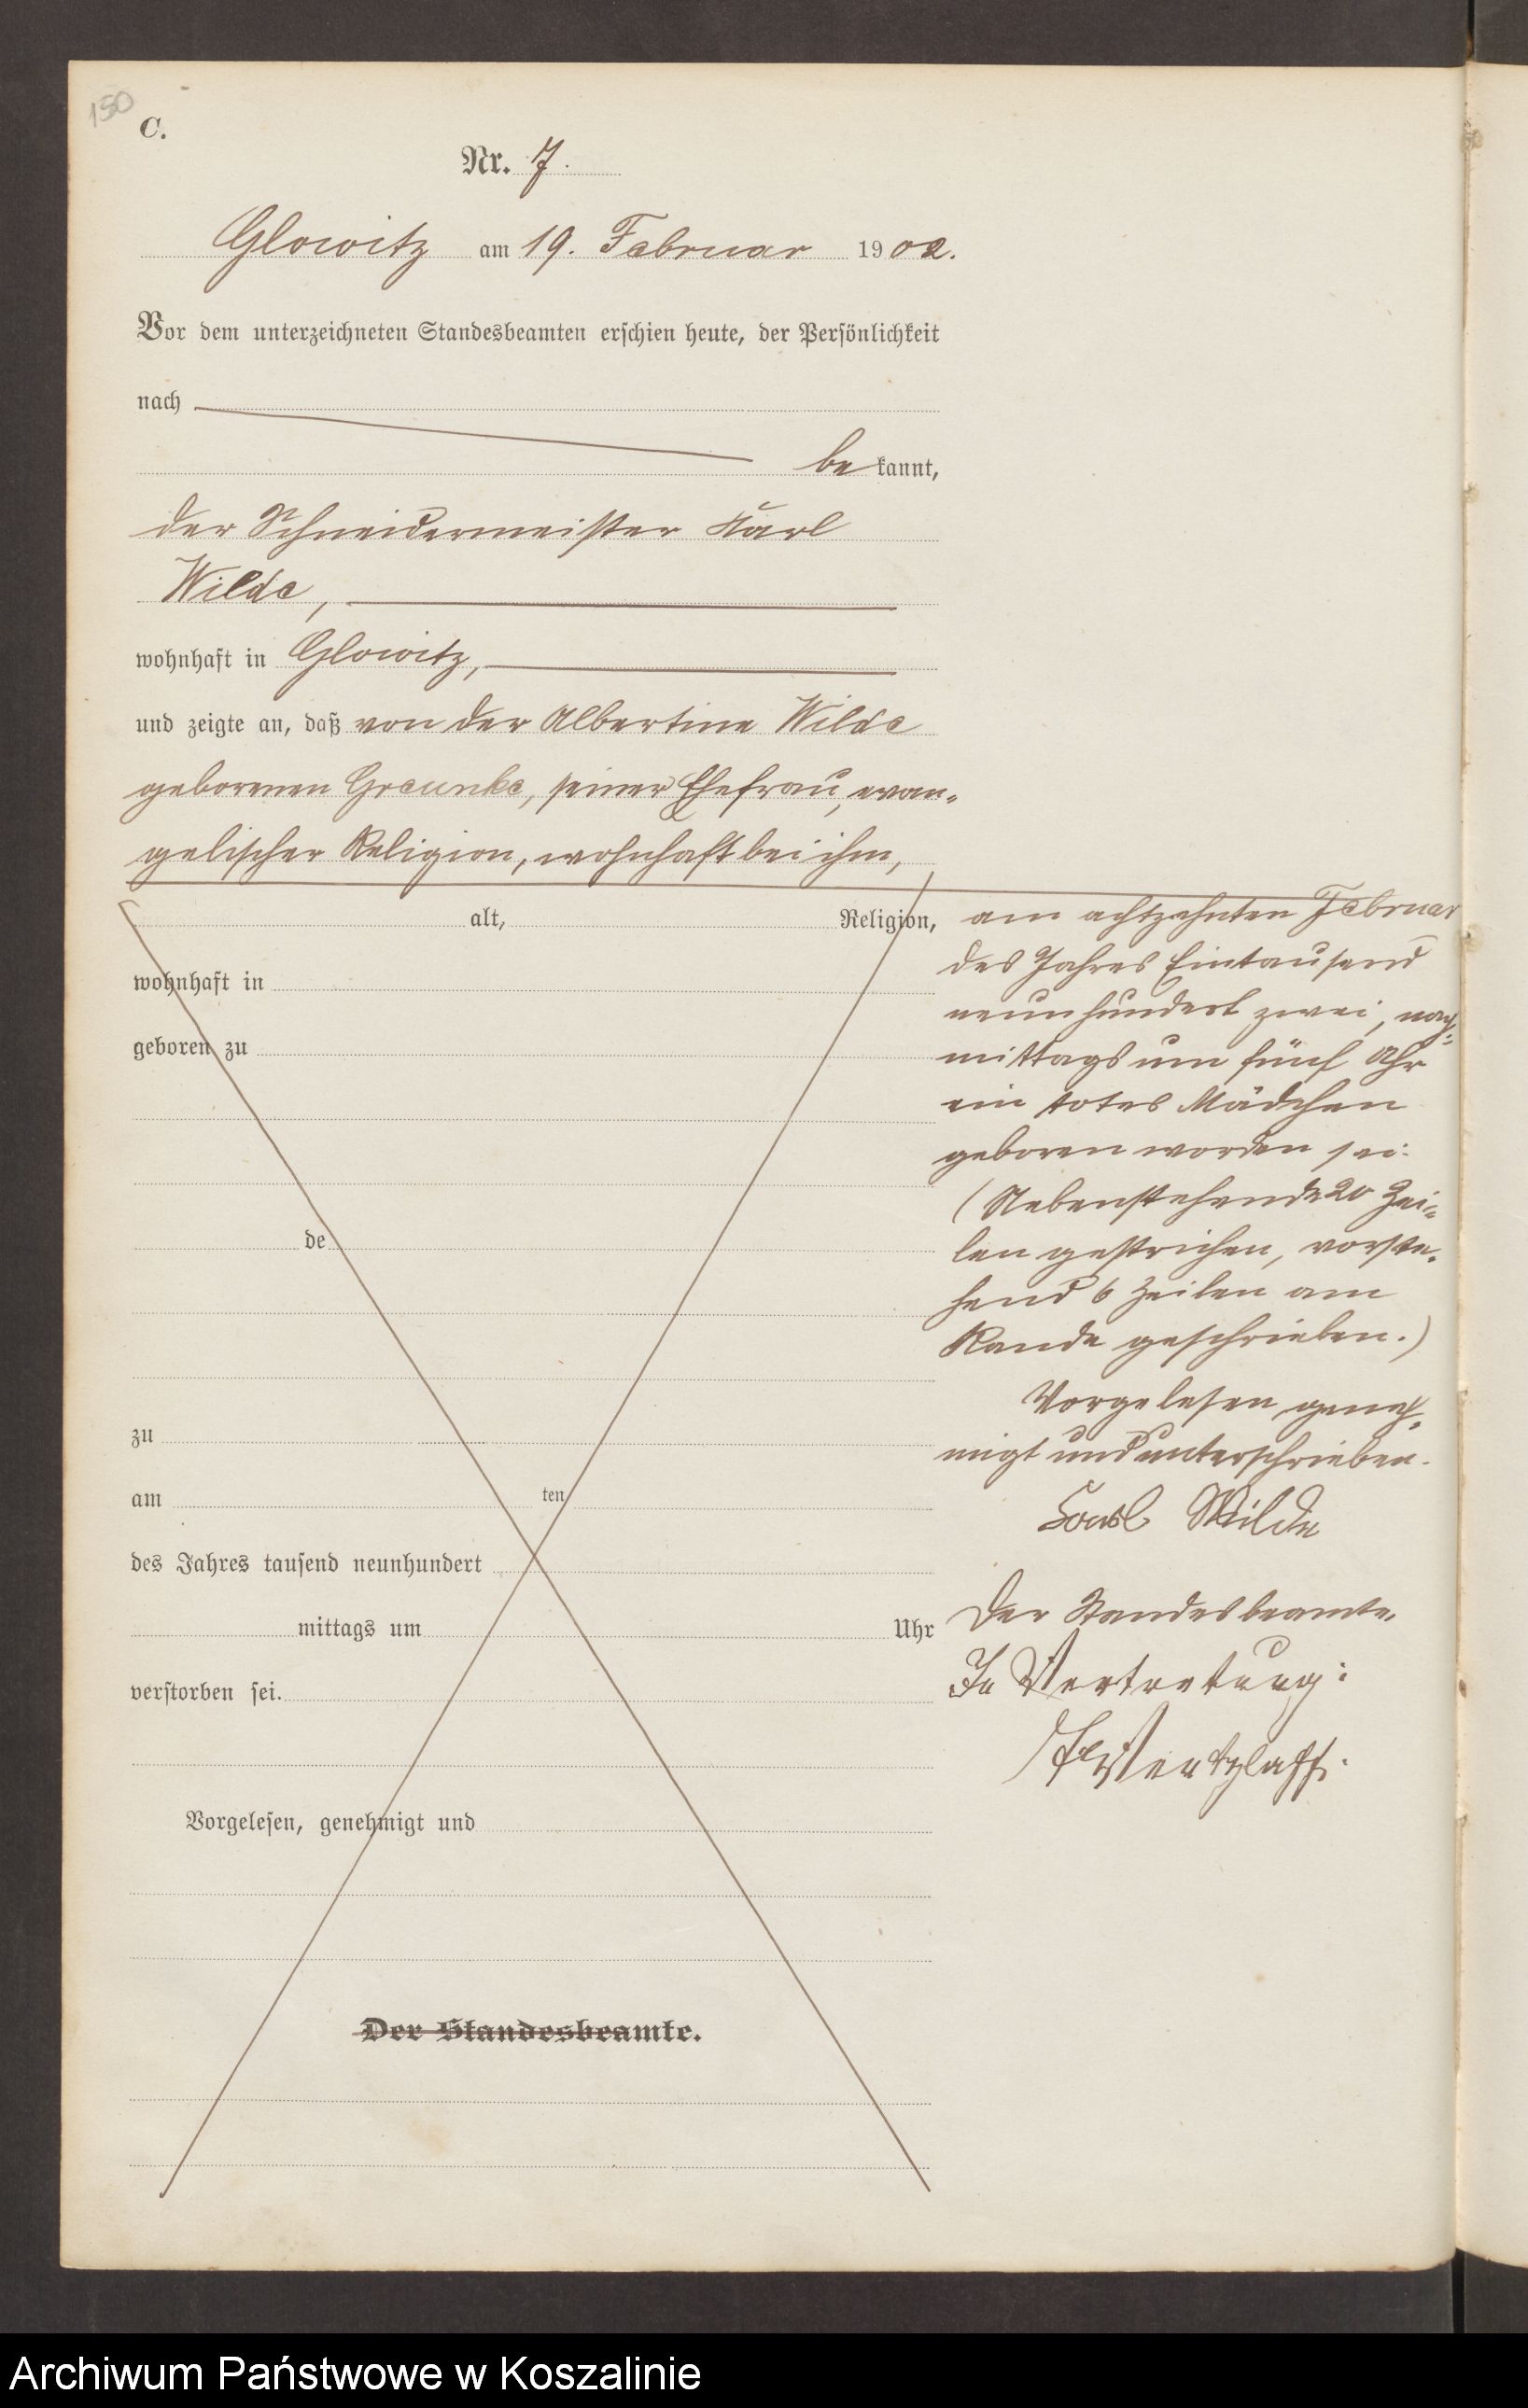 150
C.
Nr. 7.
Glowitz am 19. Februar 1902.
Vor dem unterzeichneten Standesbeamten erschien heute, der Persönlichkeit
nach
be kannt,
der Schneidermeister Karl
Wilde,
wohnhaft in Glowitz,
und zeigte an, daß von der Albertine Wilde
geborenen Greunke, seiner Ehefrau, evan-
gelischer Religion, wohnhaft bei ihm,
alt, Religion,
wohnhaft in
geboren zu
de
zu
am ten
des Jahres tausend neunhundert
mittags um Uhr
verstorben sei.
Vorgelesen, genehmigt und
Der Standesbeamte.
am achtzehnten Februar
des Jahres Eintausend
neunhundert zwei, nach-
mittags um fünf Uhr
ein totes Mädchen
geboren worden sei.
(Nebenstehende 20 Zei-
len gestrichen, vorste-
hend 6 Zeilen am
Rande geschrieben.)
Vorgelesen, geneh-
migt und unterschrieben.
Karl Wilde
Der Standesbeamte.
In Vertretung:
Ventzlaff.
Archiwum Państwowe w Koszalinie